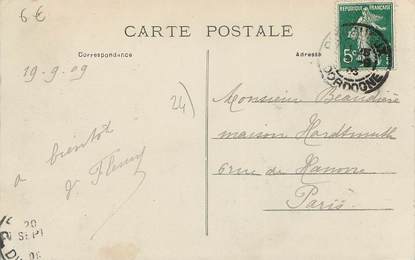 6€
CARTE POSTALE
Correspondance
Adresse
REPUBLIQUE FRANÇAISE
5c
DORDOGNE
19-9-09
24)
Monsieur Beaudière
maison Hardtmuth
6 rue de Hanovre
Paris
a bientôt
J. Fleury
20
SEPT